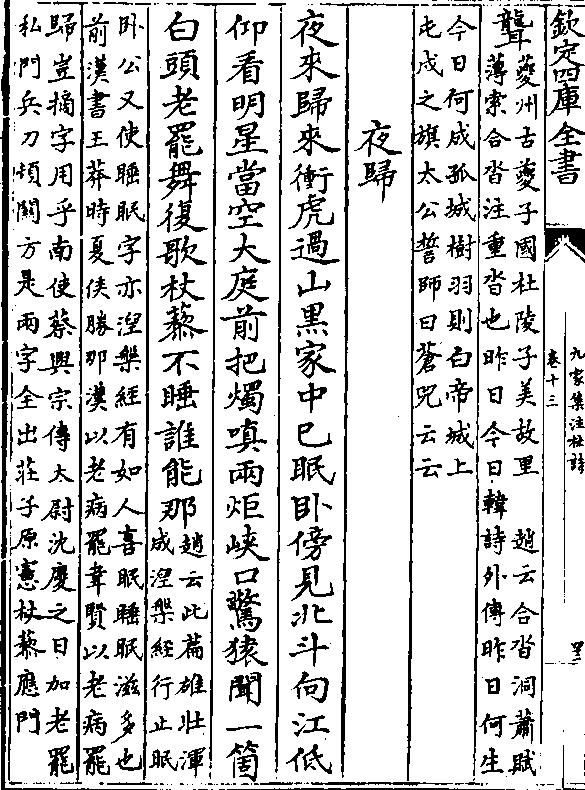 欽定四庫全書
九家集注杜詩
卷十三
聾夔州古夔子國杜陵子美故里 趙云合沓洞簫賦
薄索合沓注重沓也昨日今日韓詩外傳昨日何生
今日何成孤城樹羽則白帝城上
屯戍之旗太公誓師曰蒼兕云云
夜歸
夜來歸來衝虎過山黒家中已眠卧傍見北斗向江低
仰看明星當空大庭前把燭嗔兩炬峽口驚猿聞一箇
白頭老罷舞復歌杖藜不睡誰能那趙云此篇雄壯渾
成涅槃經行止眠
卧公又使睡眠字亦涅槃經有如人喜眠睡眠滋多也
前漢書王莽時夏侯勝邴漢以老病罷韋賢以老病罷
歸豈摘字用乎南使蔡興宗傳太尉沈慶之日加老罷
私門兵刀頓闕方是兩字全出莊子原憲杖藜應門